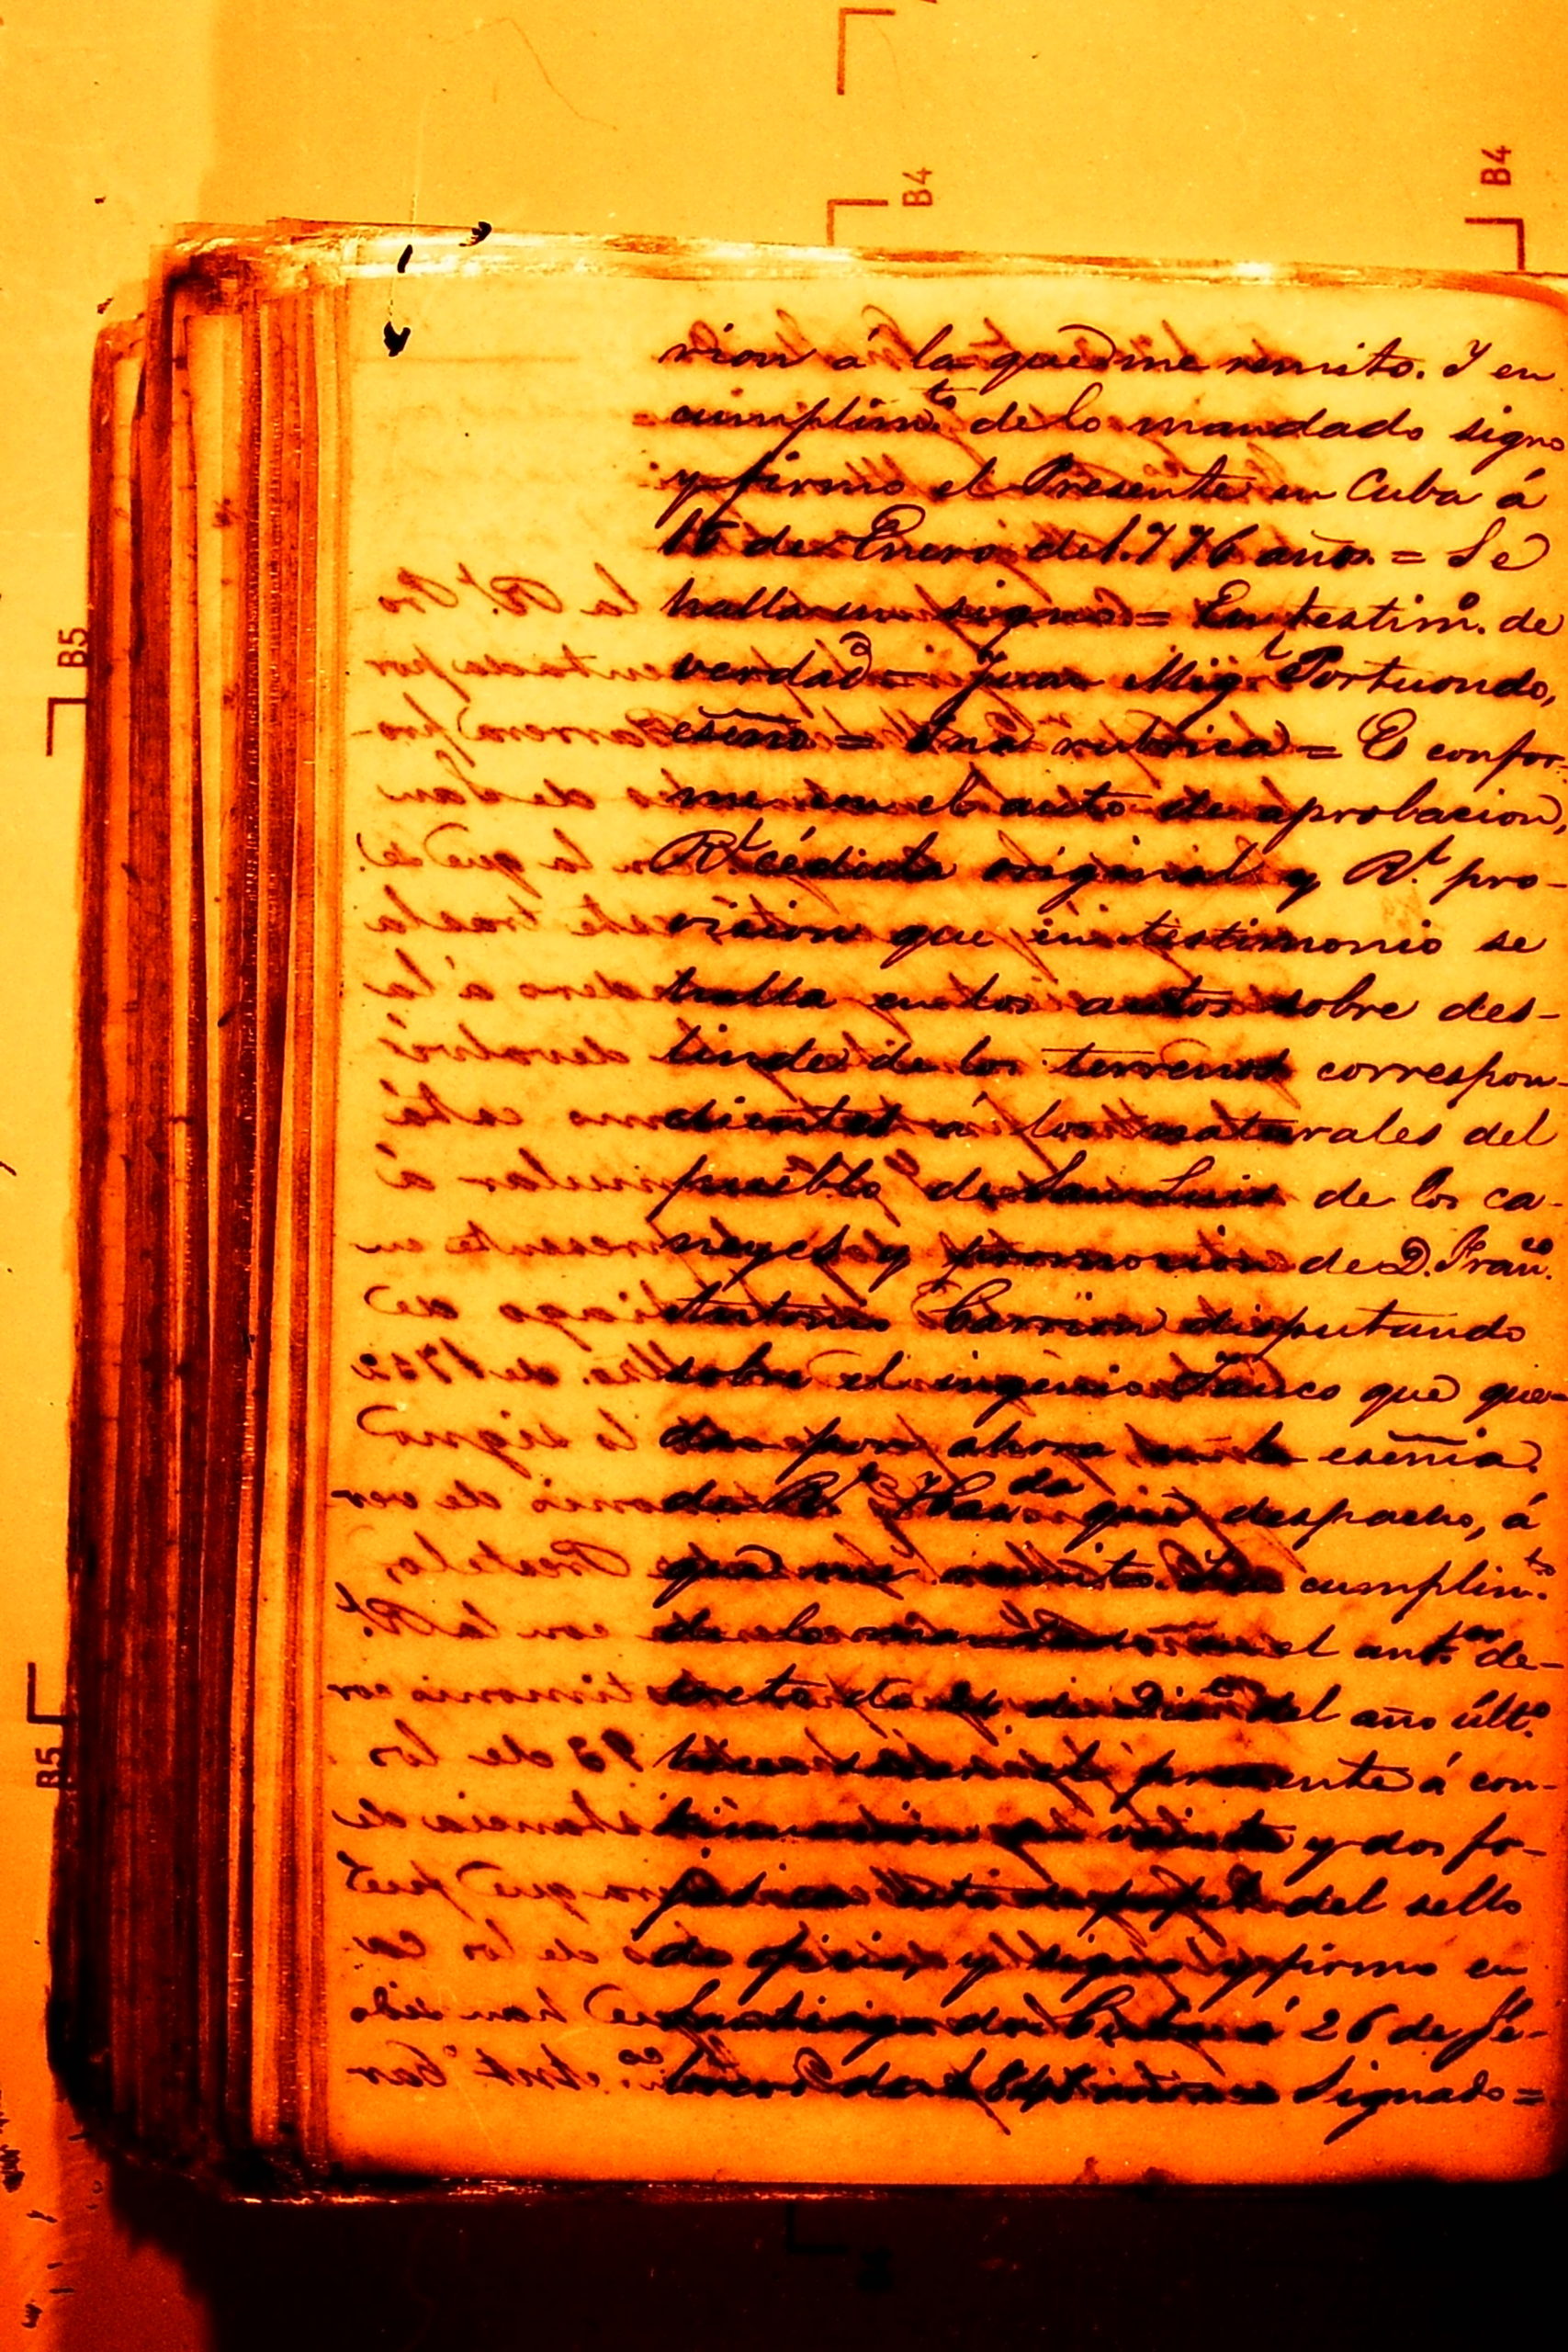 B4
B4
B5
B5
vion á la que me remito. Y en
cumplim.to de lo mandado signo
y firmo el Presente en Cuba á
15 de Enero de 1.776 años. = Se
halla un signo = En testim.o de
verdad = Juan Mig.l Portuondo,
esc̃no = Una rubrica = Es confor-
me con el auto de aprobacion,
R.l cédula original y R.l pro-
vision que en testimonio se
halla en los autos sobre des-
linde de los terrenos correspon-
dientes á los naturales del
pueblo de San Luis de los ca-
neyes y promocion de D. Fran.co
Antonio Carrion disputando
sobre el ingenio que que-
da por ahora en la esc̃nia.
de R.l Haz.da que despacho, á
que me remito. En cumplim.to
de lo mandado el ant.or de-
creto de de Dic.e del año últ.o
el presente á con-
tinuacion de veinte y dos fo-
jas con esta de papel del sello
de oficio, y signo y firmo en
Santiago de Cuba á 26 de Fe-
brero de 1.84 Signado =